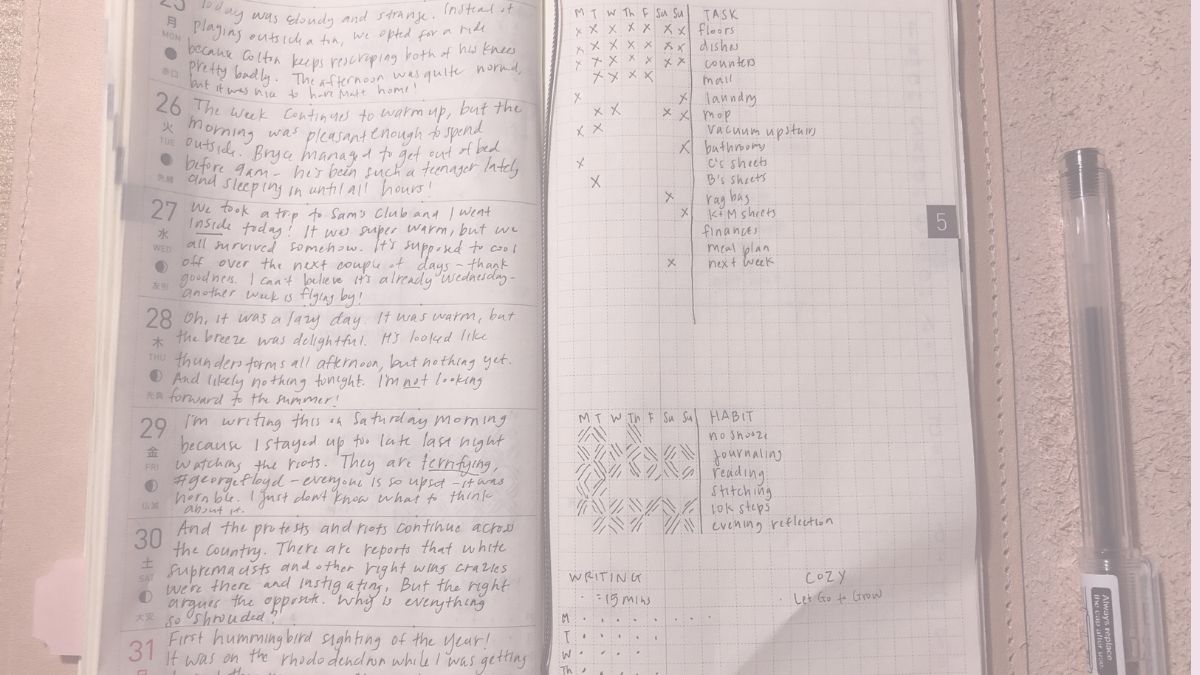 25
月
MON
Today was cloudy and strange. Instead of
playing outside a ton, we opted for a ride
because Colton keeps rescraping both of his knees
pretty badly. The afternoon was quite normal,
but it was nice to have Matt home!
26
火
TUE
先勝
The week continues to warm up, but the
morning was pleasant enough to spend
outside. Bryce managed to get out of bed
before 9am - he's been such a teenager lately
and sleeping in until all hours!
27
水
WED
友引
We took a trip to Sam's Club and I went
inside today! It was super warm, but we
all survived somehow. It's supposed to cool
off over the next couple of days - thank
goodness. I can't believe it's already Wednesday -
another week is flying by!
28
木
THU
先負
Oh, it was a lazy day. It was warm, but
the breeze was delightful. It's looked like
thunderstorms all afternoon, but nothing yet.
And likely nothing tonight. I'm not looking
forward to the summer!
29
金
FRI
仏滅
I'm writing this on Saturday morning
because I stayed up too late last night
watching the riots. They are terrifying,
#georgefloyd - everyone is so upset - it was
horrible. I just don't know what to think
about it.
30
土
SAT
大安
And the protests and riots continue across
the country. There are reports that white
supremacists and other right wing crazies
were there and instigating. But the right
argues the opposite. Why is everything
so shrouded?
31
First hummingbird sighting of the year!
It was on the rhododendron while I was getting
M T W Th F Sa Su TASK
x x x x x x x floors
x x x x x x x dishes
x x x x x x x counters
x x x x mail
x x laundry
x x x x mop
x x vacuum upstairs
x bathrooms
x C's sheets
x B's sheets
x rag bag
x K+M sheets
finances
meal plan
x next week
5
M T W Th F Sa Su HABIT
no snooze
journaling
reading
stitching
10k steps
evening reflection
WRITING
· = 15 mins
M
T
W
Th
COZY
· Let Go to Grow
Always replace
the cap after use.